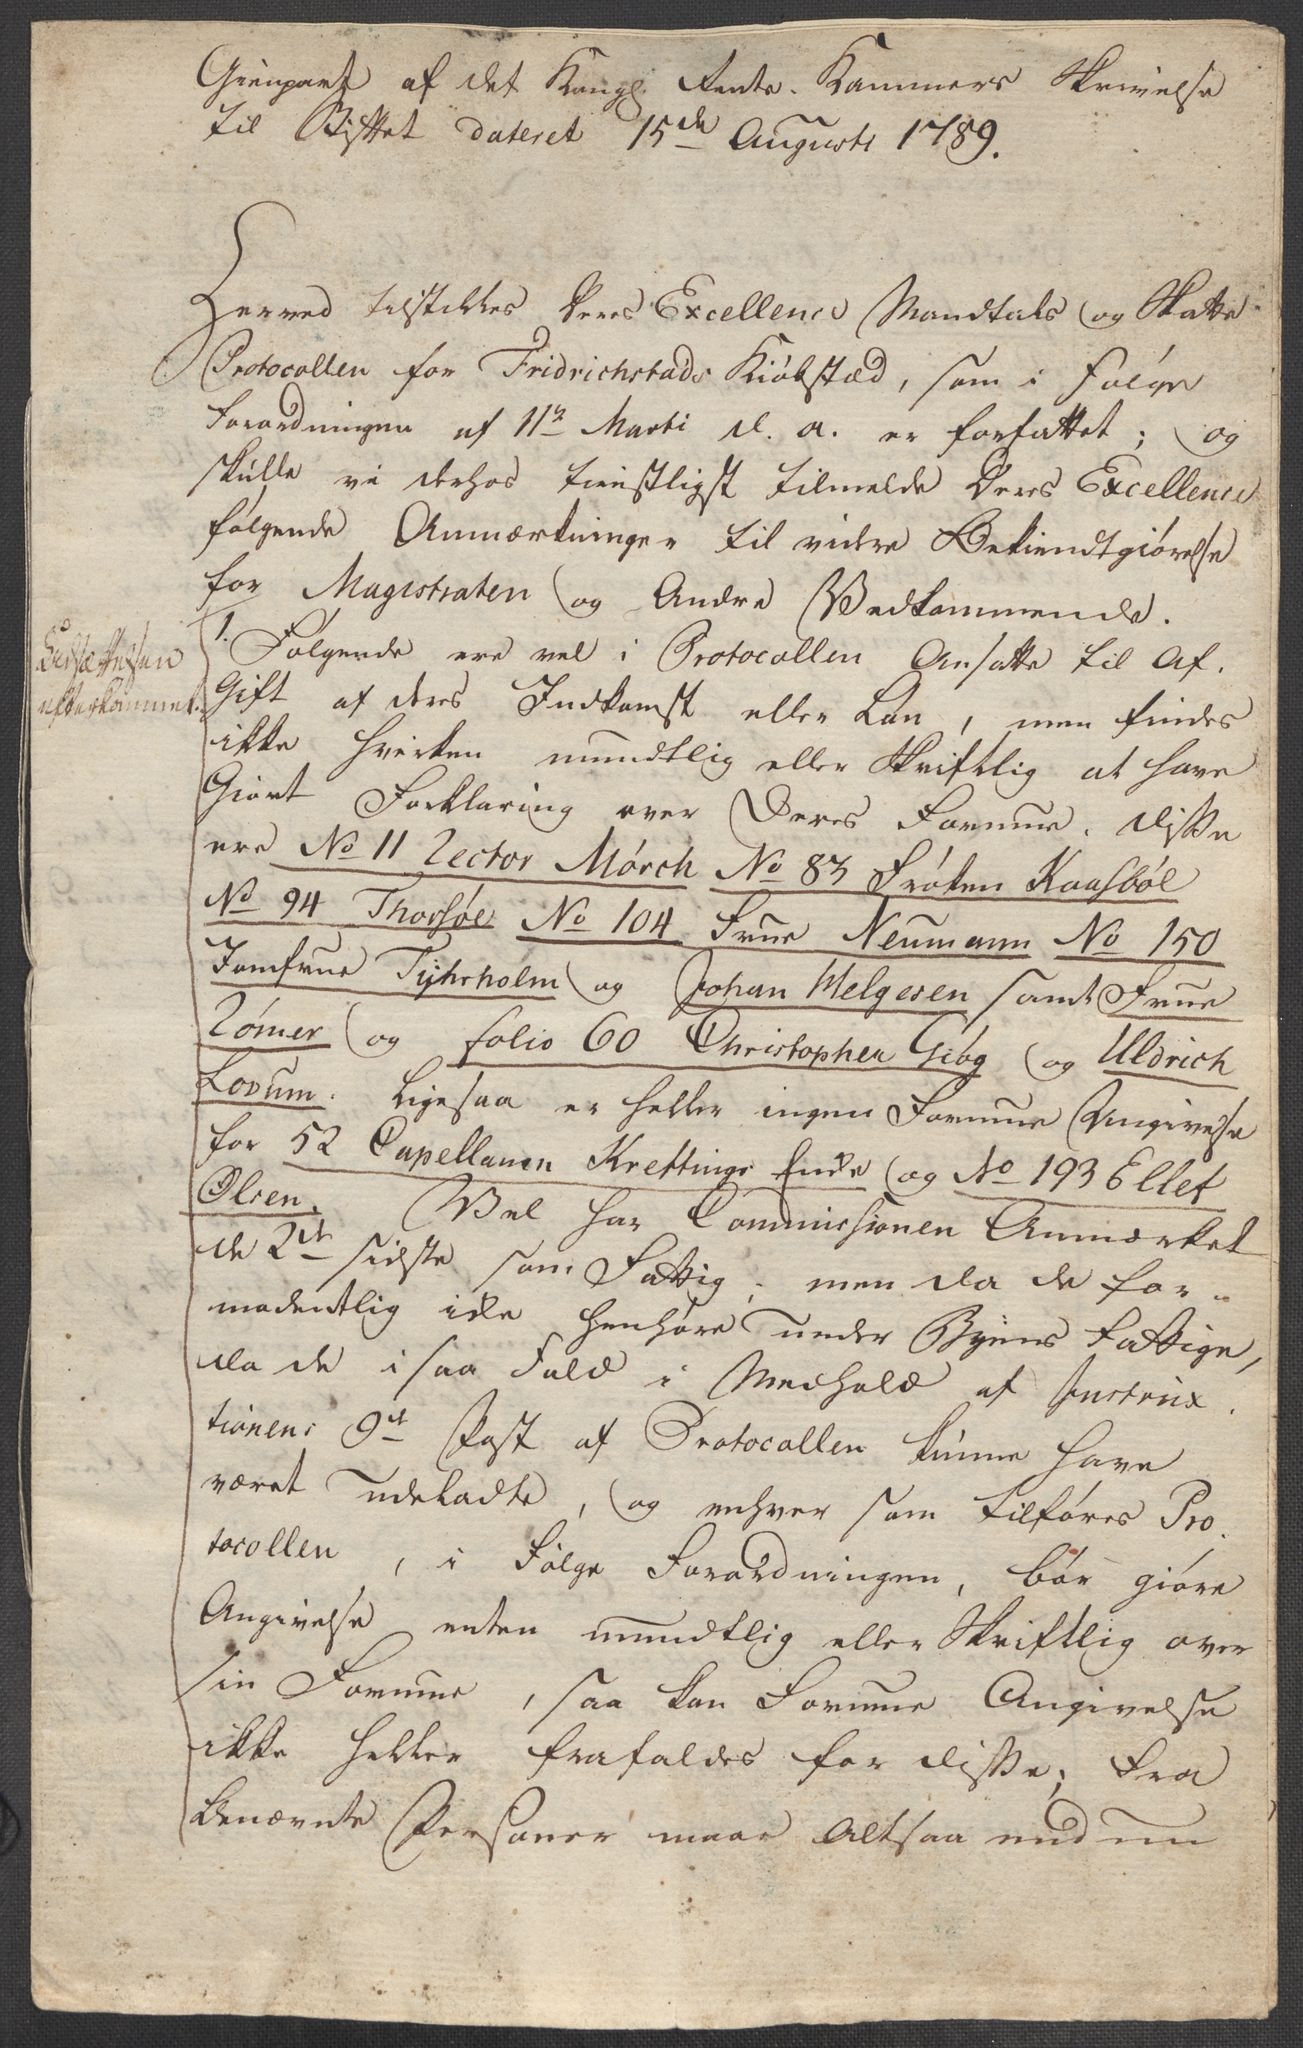 Gienpart af det Kongl. Rente-Kammers Skrivelse
til Stiftet dateret 15de Augusti 1789.
Herved tilstilles Deres Excellence Mandtals og Skatte
Protocollen for Fridrichstads Kiøbstæd, som i Følge
Forordningen af 11te Marti d. a. er forfattet; og
skulle vi derhos tienstligst tilmelde Deres Excellence
følgende Anmærkninger til videre Bekiendtgiørelse
for Magistraten og Andre Vedkommende.
1. Følgende ere vel i Protocollen Ansatte til Af-
gift af deres Indkomst eller Løn, men findes
ikke hverken mundtlig eller Skriftlig at have
Giort Forklaring over Deres Formue. Disse
ere No 11 Lector Mörch No 83 Frøken Kaasböl
No 94 Thorsøe No 104 Frue Neumann No 150
Jomfrue Tyhrholm og Johan Helgesen samt Frue
Römer og folio 60 Christopher Giög og Uldrich
Lovum. Ligesaa er heller ingen Formue Angivelse
for 52 Capellanen Krettings Enke og No 193 Ellet
Olsen. Vel har Commissionen Anmærket
de 2de sidste som Fattig, men da de for-
modentlig ikke henhøre under Byens Fattige,
da de i saa Fald i Medhold af Instrux-
tionens 9de Post af Protocollen kunne have
været udeladte, og enhver som tilføres Pro-
tocollen, i Følge Forordningen, bör giöre
Angivelse enten mundtlig eller Skriftlig over
sin Formue, saa kan Formue Angivelse
ikke heller frafaldes for disse; Fra
benævnte Personer maae Altsaa endnu
efterkommet.